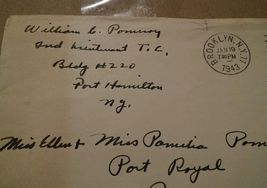 William C. Pomroy
2nd Lieutenant T.C.
Bldg #220
Fort Hamilton
N.Y.
BROOKLYN, N.Y. 11
JAN 19
1943
Miss Ellen & Miss Pamilia Pom
Port Royal